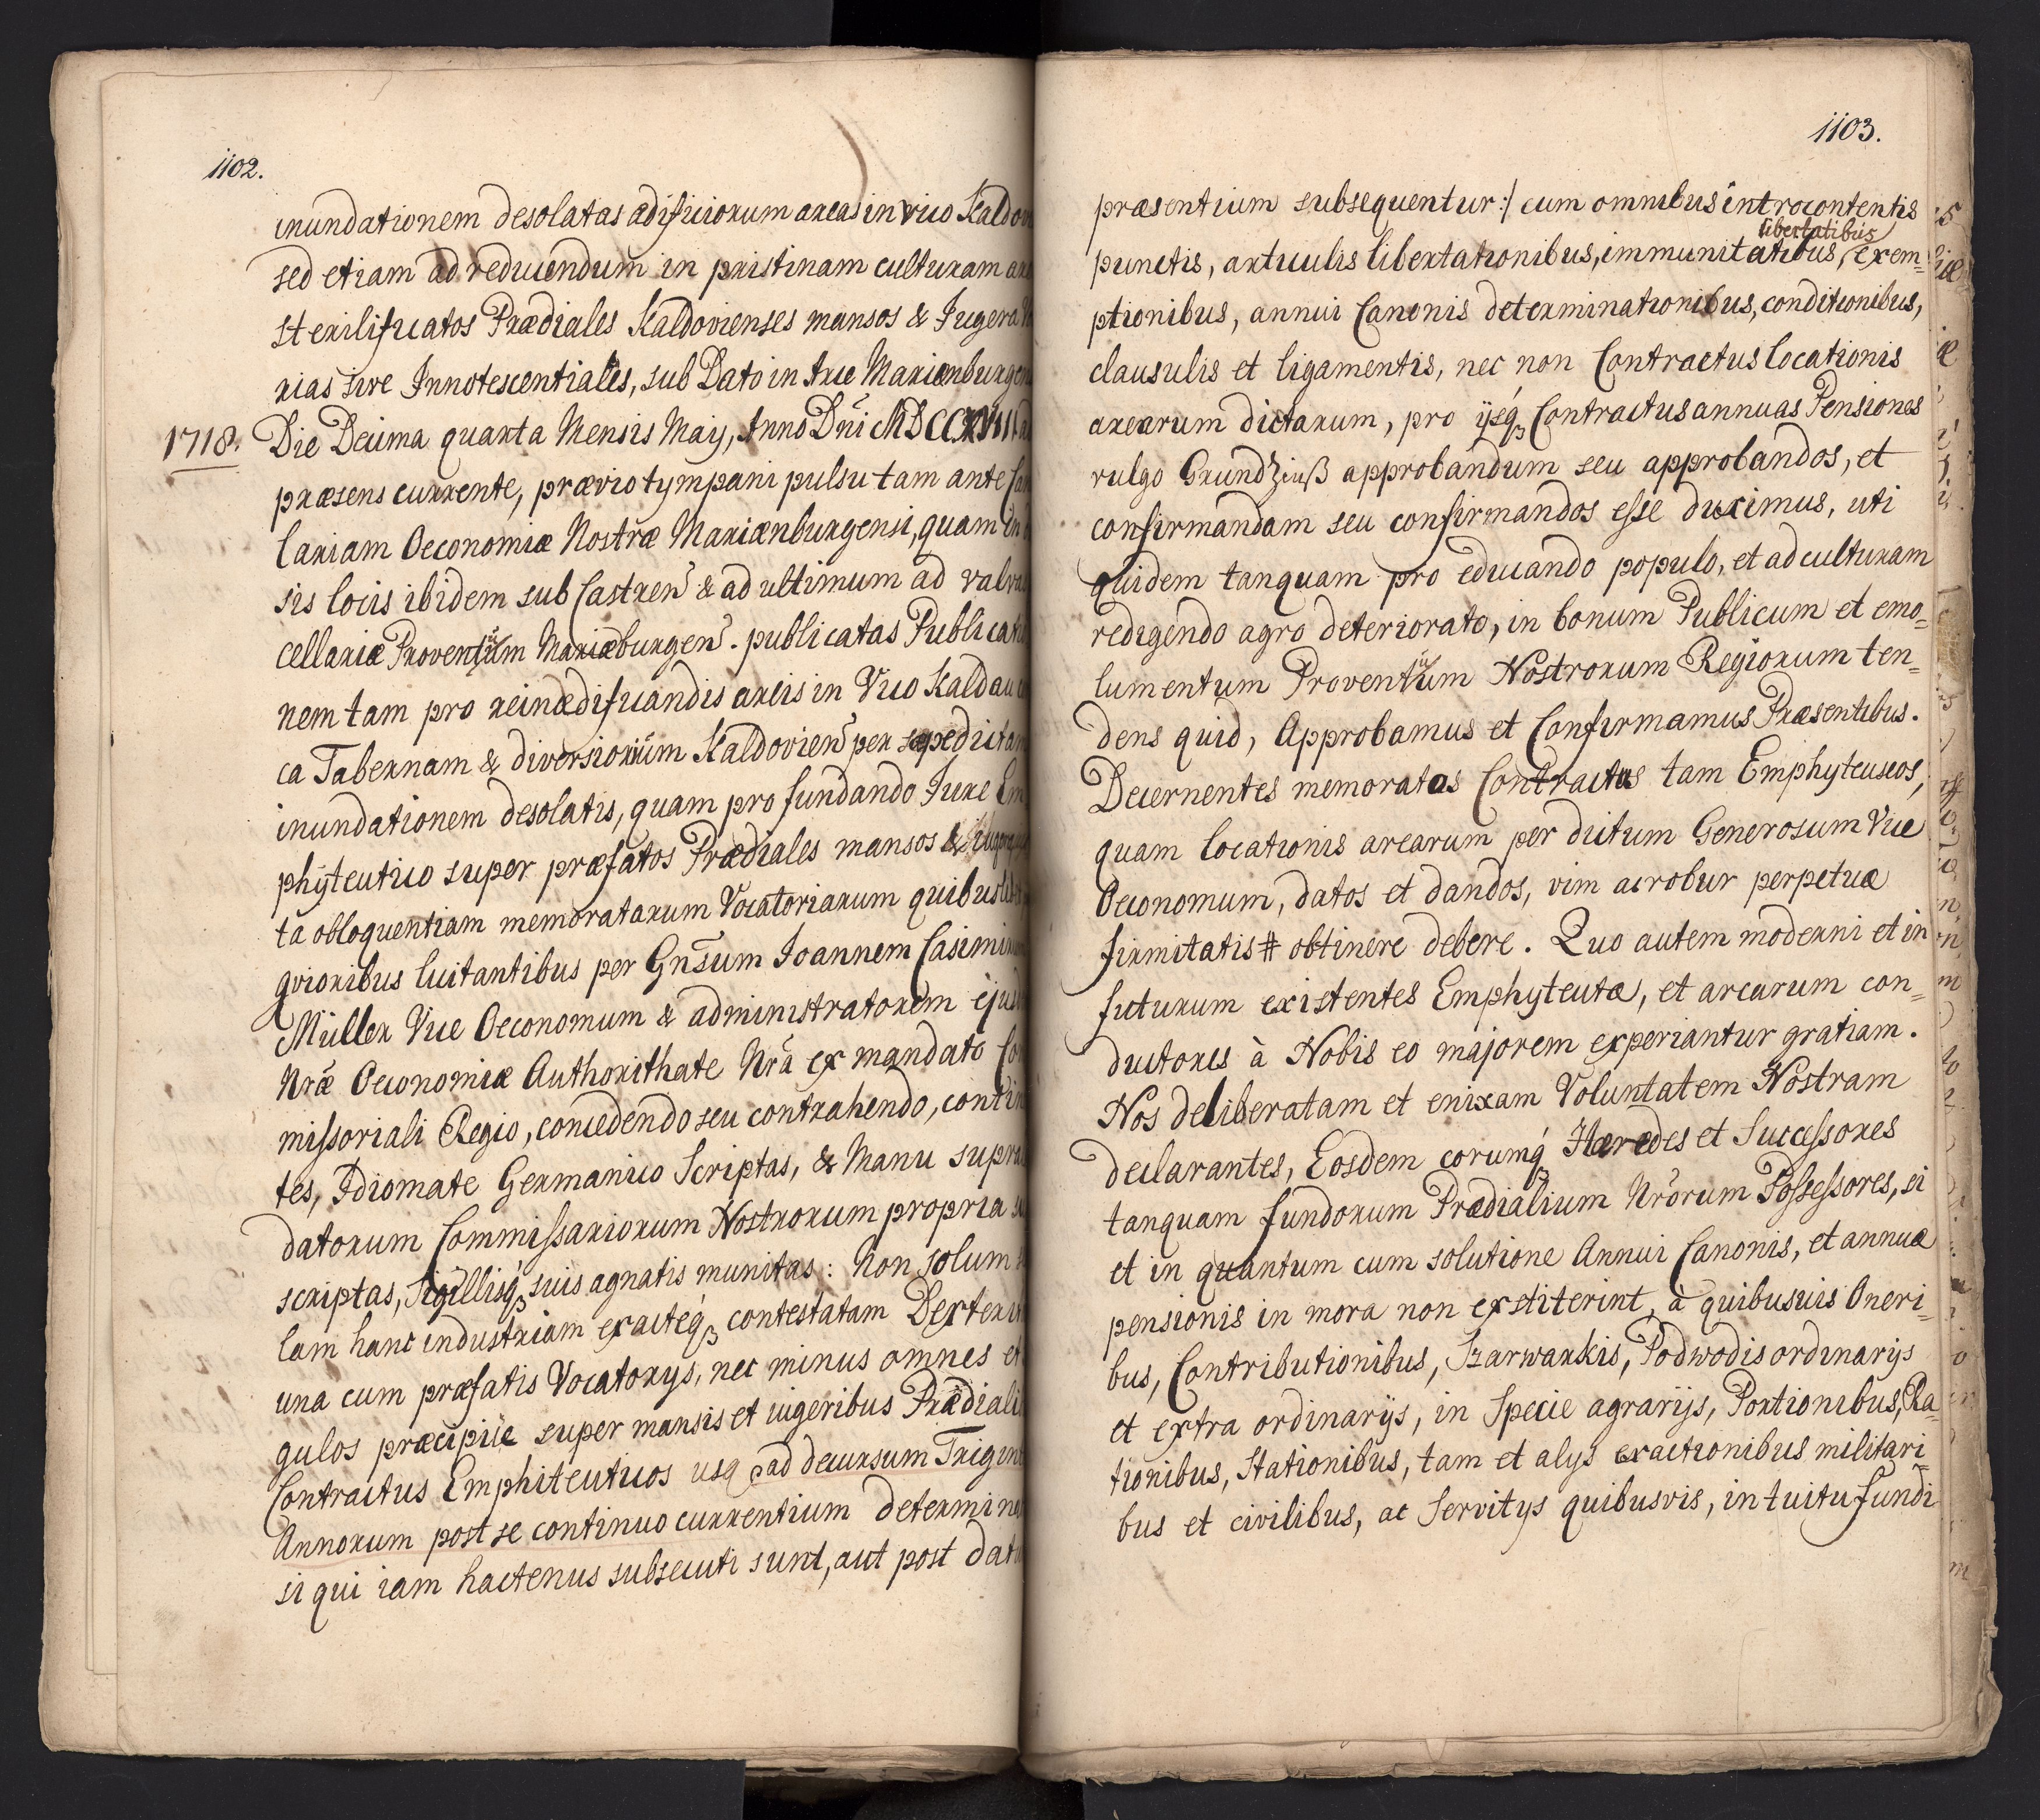 1102.
inundationem desolatas ædificiorum areas in vico Kaldov
sed etiam ad reducendum in pristinam culturam
sterilificatos Prædiales Kaldovienses mansos & Jugera
rias sive Innotescentiales, sub Dato in Arce Marienburgen
1718. Die Decima quarta Mensis Maÿ, Anno Dni MDCCXVIII
præsens currente, prævio tympani pulsu tam ante Can
lariam Oeconomiæ Nostræ Mariænburgensi, quam in
sis locis ibidem sub Castren & ad ultimum ad valva
cellariæ Proventuum Mariæburgen. publicatas Publicatio
nem tam pro reinædificandis areis in Vico Kaldau
ca Tabernam & diversorium Kaldovien per sæpedictam
inundationem desolatis, quam pro fundando Jure Em
phyteutico super præfatos Prædiales mansos &
ta obloquentiam memoratarum Vocatoriarum quibus
qvioribus licitantibus per Gnsum Joannem Casimirum
Müller Vice Oeconomum & administratorem ejusd
Nræ Oeconomiæ Authorithate Nra ex mandato Co
missoriali Regio, concedendo seu contrahendo, contin
tes, Idiomate Germanico Scriptas, & Manu supra
datorum Commissariorum Nostrorum propria su
scriptas, Sigillisq suis agnatis munitas: Non solum
lam hanc industriam exacteq contestatam Dexterit
una cum præfatis Vocatorys, nec minus omnes et
gulos præcipue super mansis et iugeribus Prædiali
Contractus Emphiteuticos usq ad decursum Trigint
Annorum post se continuo currentium determina
si qui iam hactenus subsecuti sunt, aut post dat
1103.
præsentium subsequentur:/ cum omnibus introcontentis
punctis, articulis libertationibus, immunitatibus, libertatibus exem=
ptionibus, annui Canonis determinationibus, conditionibus,
clausulis et ligamentis, nec non Contractus locationis
arearum dictarum, pro ijsq Contractus annuas Pensiones
vulgo Grundzinß approbandum seu approbandos, et
confirmandam seu confirmandos esse duximus, uti
quidem tanquam pro educando populo, et ad culturam
redigendo agro deteriorato, in bonum Publicum et emo=
lumentum Proventuum Nostrorum Regiorum ten=
dens quid, Approbamus et Confirmamus Præsentibus.
Decernentes memoratos Contractus tam Emphyteuseos,
quam locationis arearum per dictum Generosum Vice
Oeconomum, datos et dandos, vim ac robur perpetuæ
firmitatis # obtinere debere. Quo autem moderni et in
futurum existentes Emphyteutæ, et arearum con=
ductores à Nobis eo majorem experiantur gratiam.
Nos deliberatam et enixam Voluntatem Nostram
declarantes, Eosdem eorumq Hæredes et Successores
tanquam fundorum Prædialium Nrorum Possessores, si
et in quantum cum solutione Annui Canonis, et annuæ
pensionis in mora non exstiterint, à quibusuis Oneri=
bus, Contributionibus, Szarwarkis, Podwodis ordinarijs
et extra ordinarijs, in Specie agrarijs, Portionibus, Ra=
tionibus, Stationibus, tam et alys exactionibus militari=
bus et civilibus, ac Servitys quibusvis, intuitu fundi